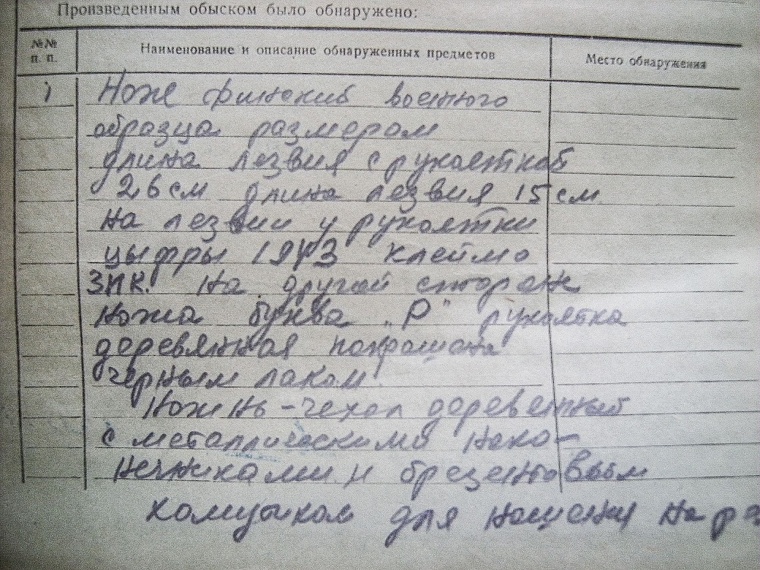 Произведенным обыском было обнаружено:
№№ п. п.
Наименование и описание обнаруженных предметов
Место обнаружения
1 Ноже финский военного
образца размером
длина лезвия с рукояткой
26 см длина лезвия 15 см
на лезвии у рукоятки
цыфры 1943 клеймо
ЗИК. на другой стороне
ножа буква „Р" рукоятка
деревянная покрашена
черным лаком
Ножны - чехол деревянный
с металлическими нако-
нечниками и брезентовым
хомутиком для ношения на